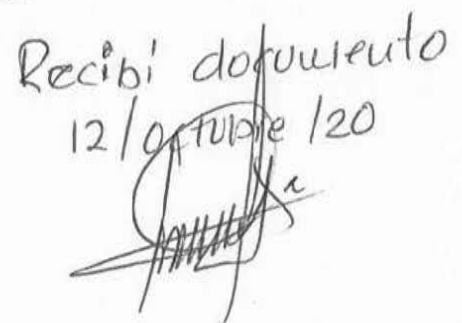 Recibí documento
12/octubre/20